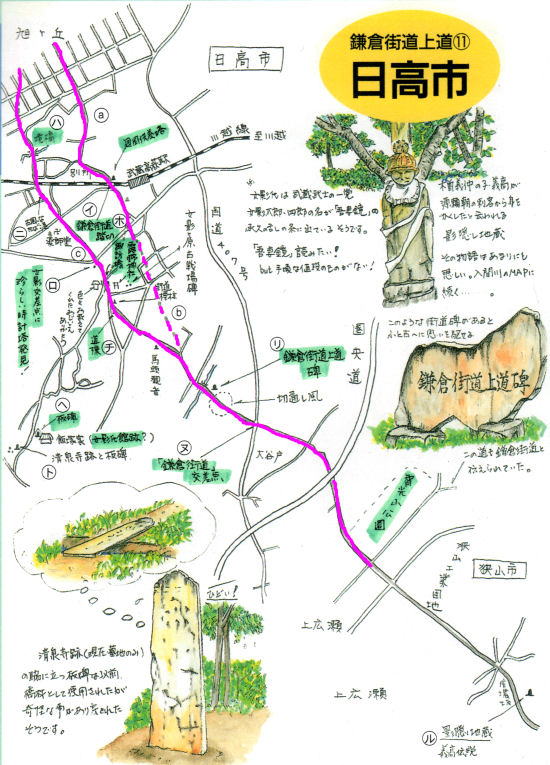 鎌倉街道上道⑪
日高市
旭ヶ丘
日高市
ⓐ
ハ
川越線
至川越
武蔵高萩駅
国道407号
女影ヶ原古戦場碑
イ
ホ
鎌倉街道
踏切
ニ
薬師堂
ⓒ
ロ
女影交差点に
珍らしい時計塔発見!
ⓑ
道標
チ
馬頭観音
リ
鎌倉街道上道
碑
切通し風
圏央道
ヘ
板碑
ト
清泉寺跡と板碑
ヌ
「鎌倉街道」
交差点
大谷戸
智光山公園
狭山工業団地
狭山市
上広瀬
上広瀬
ル
影隠し地蔵
義高伝説
※
女影氏は武蔵武士の一党
女影太郎・四郎の名が「吾妻鏡」の
承久の乱の条に出ているそうです。
「吾妻鏡」読みたい!
but 手頃な値段のものがない!
木曽義仲の子義高が
源頼朝の刺客から身を
かくしたと云われる
影隠し地蔵
その物語はあまりにも
悲しい。入間川のMAPに
続く……。
このような街道碑があると
ふと古へに思いを馳せる
鎌倉街道上道碑
この道も鎌倉街道と
伝えられていた。
ひどい!
清泉寺跡(現在墓地のみ)
の脇に立つ板碑は以前、
橋板として使用されたが
奇怪な事があり戻された
そうです。